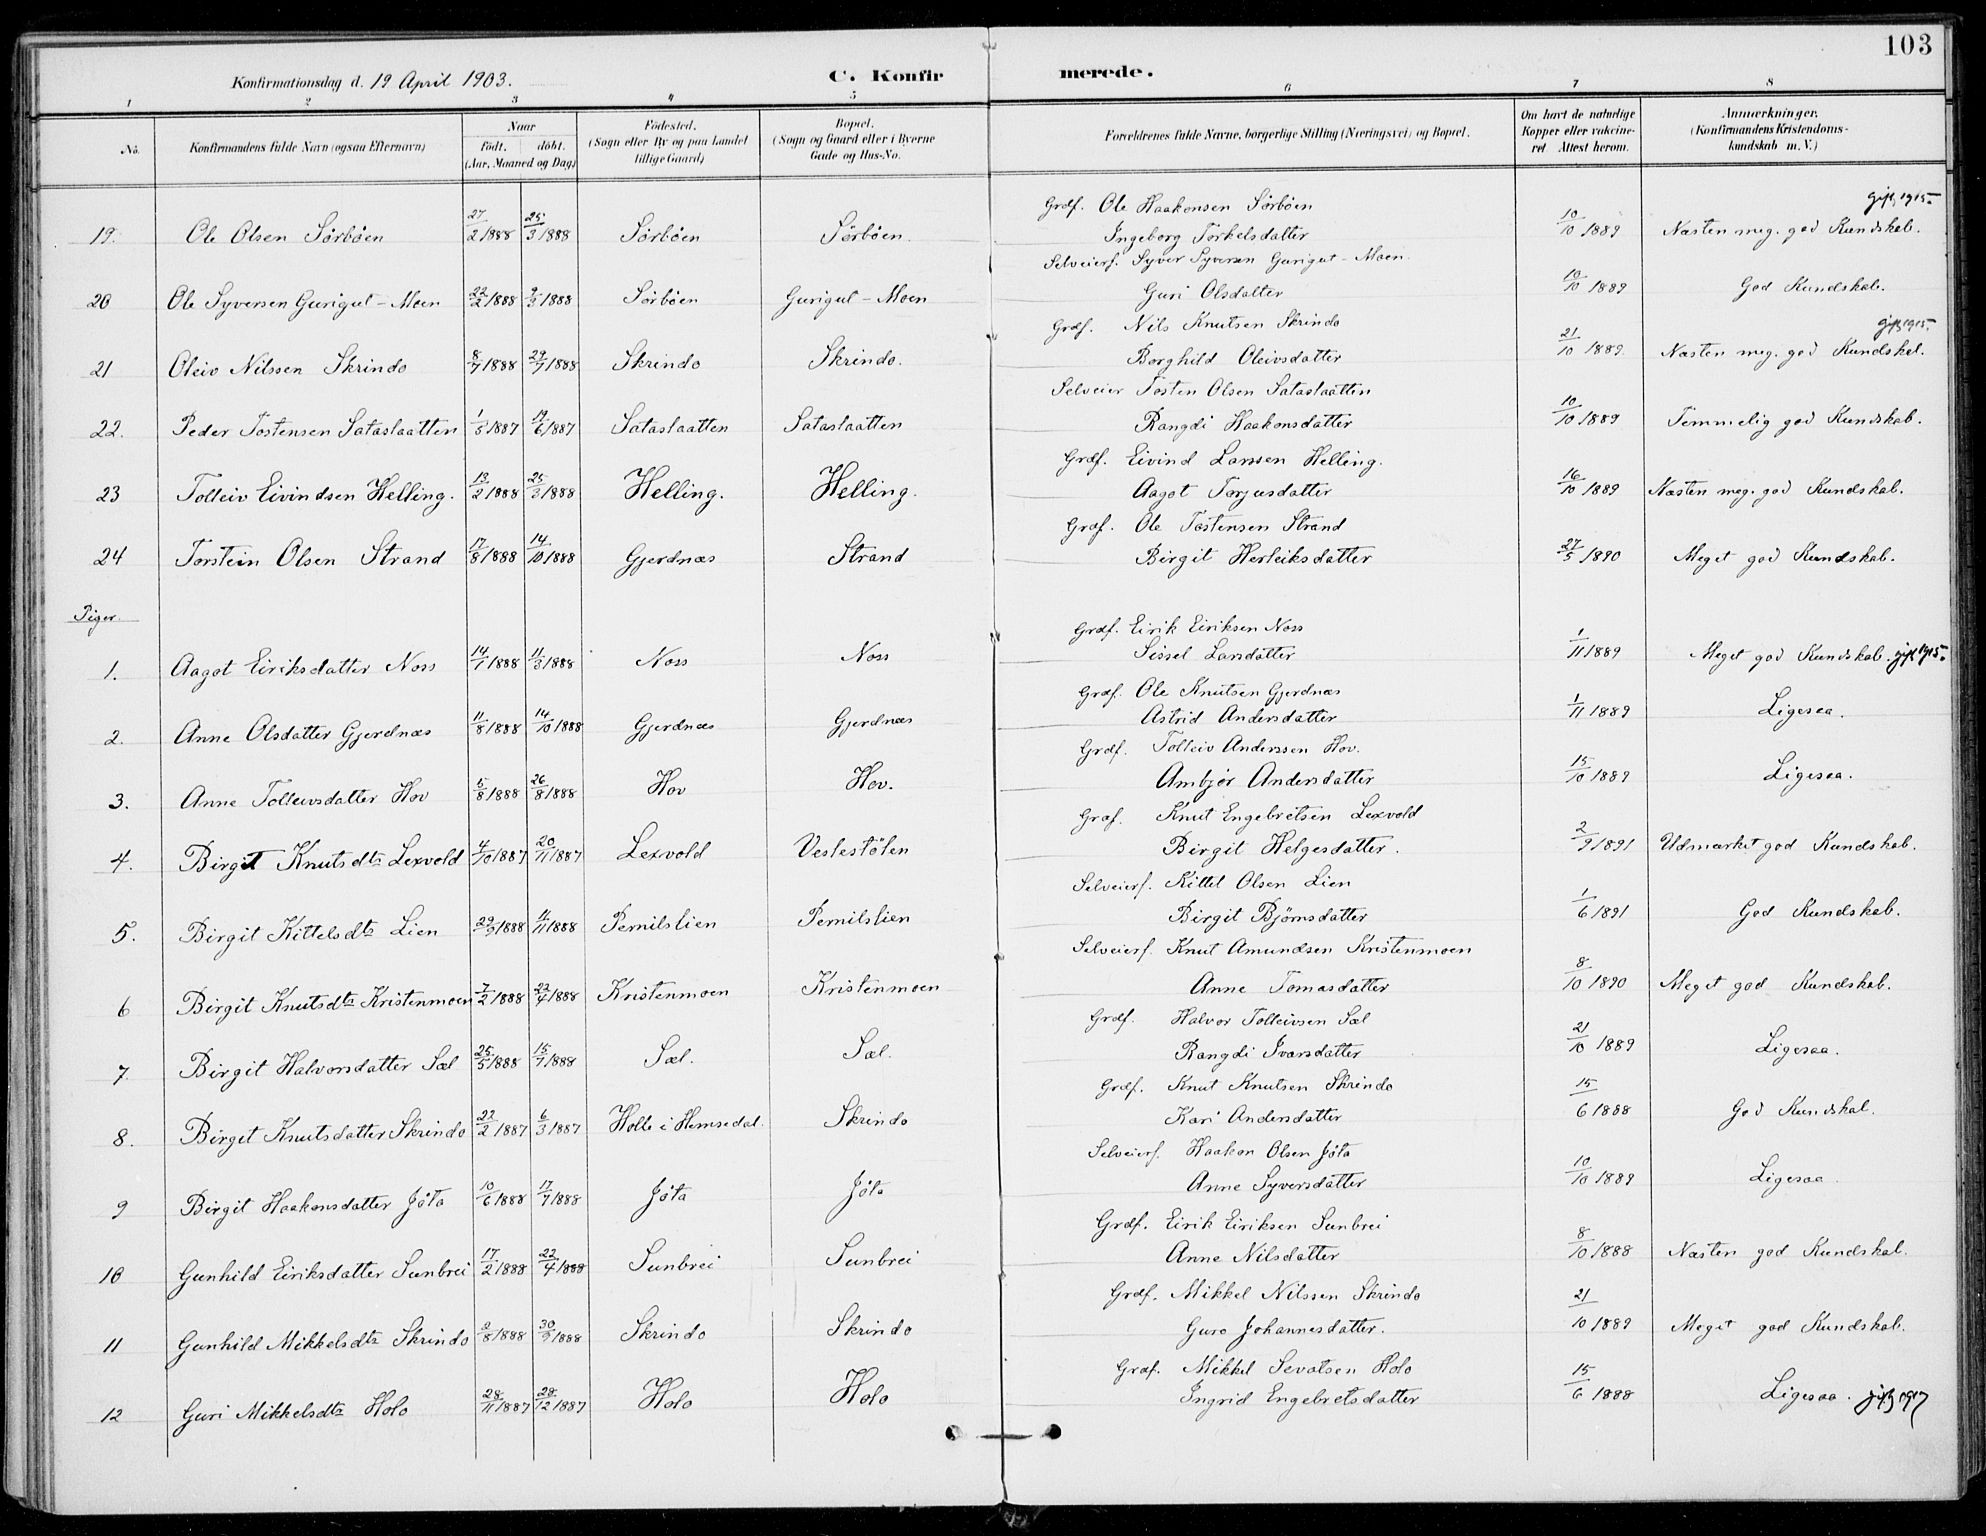 103
Konfirmationsdag d. 19 April 1903. C. Konfirmerede.
1 2 3 4 5 6 7 8
No. Konfirmandens fulde Navn (ogsaa Efternavn) Naar födt. döbt. (Aar, Maaned og Dag) Födested. (Sogn eller By og paa Landet tillige Gaard) Bopæl. (Sogn og Gaard eller i Byerne Gade og Hus-No. Forældrenes fulde Navne, borgerlige Stilling (Næringsvei) og Bopæl. Om havt de naturlige Kopper eller vakcineret. Attest herom. Anmærkninger. (Konfirmandens Kristendomskundskab m. V.)
19. Ole Olsen Sörböen 27/2 1888 25/3 1888 Sörböen Sörböen. Grdf. Ole Haakonsen Sörböen Ingeborg Torkelsdatter 10/10 1889 Næsten meg. god Kundskab. gift 1915
20 Ole Syversen Gurigut-Moen 22/2 1888 2/3 1888 Sörböen Gurigut-Moen Selveierf. Syver Syversen Gurigut-Moen. Guri Olsdatter 10/10 1889 God Kundskab.
21 Oleiv Nilssen Skrindo 8/7 1888 29/7 1888 Skrindo Skrindo. Grdf. Nils Knutsen Skrindo Borghild Oleivsdatter 21/10 1889 Næsten meg. god Kundskab. gift 1915.
22. Peder Tostensen Sataslaatten 1/3 1887 19/6 1887 Sataslaatten Sataslaatten Selveier Tosten Olsen Sataslaatten Rangdi Haakonsdatter 10/10 1889 Temmelig god Kundskab.
23 Tolleiv Eivindsen Helling. 13/2 1888 25/3 1888 Helling. Helling. Grdf. Eivind Larssen Helling. Aagot Torjusdatter 16/10 1889 Næsten meg. god Kundskab.
24 Torstein Olsen Strand 17/8 1888 14/10 1888 Gjerdnæs Strand Grdf. Ole Tostensen Strand Birgit Herleiksdatter 27/5 1890 Meget god Kundskab.
Piger.
1. Aagot Eiriksdatter Noss 14/1 1888 11/3 1888 Noss Noss Grdf. Eirik Eiriksen Noss Sissel Larsdatter 1/11 1889 Meget god Kundskab. gift 1915.
2. Anne Olsdatter Gjerdnæs 11/8 1888 14/10 1888 Gjerdnæs Gjerdnæs Grdf. Ole Knutsen Gjerdnæs Astrid Andersdatter 1/11 1889 Ligesaa.
3. Anne Tolleivsdatter Hov 5/8 1888 26/8 1888 Hov Hov. Grdf. Tolleiv Anderssen Hov. Ambjör Andersdatter 15/10 1889 Ligesaa.
4. Birgit Knutsdtr Lexvold 4/10 1887 20/11 1887 Lexvold Veslestölen Grdf. Knut Engebretsen Lexvold Birgit Helgesdatter. 2/9 1891 Udmærket god Kundskab.
5. Birgit Kittelsdtr Lien 29/9 1888 4/11 1888 Pernilslien Pernilslien Selveierf. Kittel Olsen Lien Birgit Björnsdatter 1/6 1891 God Kundskab.
6 Birgit Knutsdtr Kristenmoen 7/2 1888 22/4 1888 Kristenmoen Kristenmoen Selveierf. Knut Amundsen Kristenmoen Anne Tomasdatter 8/10 1890 Meget god Kundskab.
7. Birgit Halvorsdatter Sæl 25/5 1888 15/7 1888 Sæl. Sæl. Grdf. Halvor Tolleivsen Sæl Rangdi Ivarsdatter 21/10 1889 Ligesaa.
8. Birgit Knutsdatter Skrindo 22/2 1887 6/3 1887 Holle i Hemsedal. Skrindo Grdf. Knut Knutsen Skrindo Kari Andersdatter 15/6 1888 God Kundskab.
9 Birgit Haakonsdatter Jöta 10/6 1888 17/7 1888 Jöta Jöta Selveierf. Haakon Olsen Jöta Anne Syversdatter 10/10 1889 Ligesaa.
10 Gunhild Eiriksdatter Sunbrei 17/2 1888 22/4 1888 Sunbrei Sunbrei Grdf. Eirik Eiriksen Sunbrei Anne Nilsdatter 8/10 1888 Næsten god Kundskab.
11 Gunhild Mikkelsdtr Skrindo 2/8 1888 30/9 1888 Skrindo Skrindo Grdf. Mikkel Nilssen Skrindo Guro Johannesdatter. 21/10 1889 Meget god Kundskab.
12 Guri Mikkelsdtr Holo 28/11 1887 28/12 1887 Holo Holo Grdf. Mikkel Sevatsen Holo Ingrid Engebretsdatter 15/6 1888 Ligesaa. gift 1917